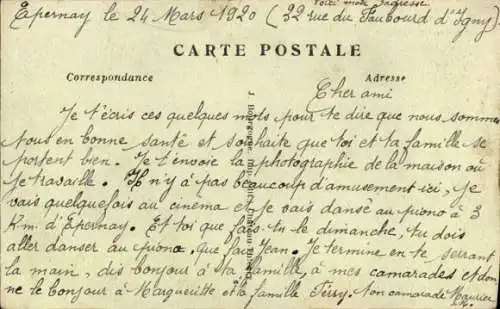 voici mon adresse
Epernay le 24 Mars 1920 (32 rue du Faubourd d'Igny)
CARTE POSTALE
Correspondance Adresse
Cher ami
Je t'écris ces quelques mots pour te dire que nous sommes
tous en bonne santé et souhaite que toi et ta famille se
portent bien. Je t'envoie la photographie de la maison où
je travaille. Il n'y à pas beaucoup d'amusement ici, je
vais quelquefois au cinema et je vais dansé au piono à 3
Km. d'Epernay. Et toi que fais-tu le dimanche, tu dois
aller danser au piono que fais Jean. Je termine en te serrant
la main, dis bonjour à ta famille, à mes camarades et don
ne le bonjour à Margueritte et la famille Ferry. ton camarade Maurice
J. Bourgogne, Imp.